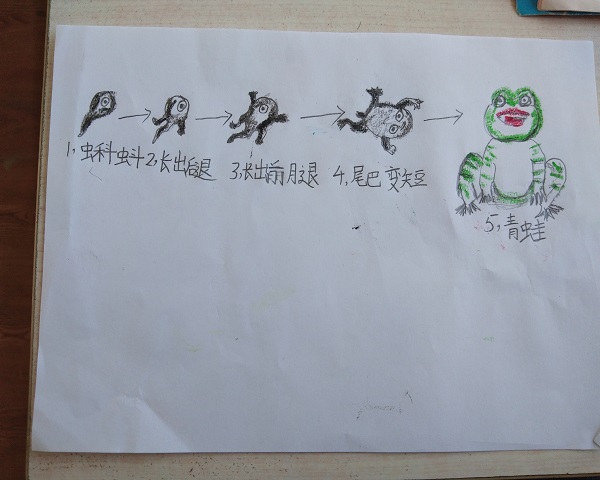 1,蝌蚪 2,长出后退 3,长出前腿 4,尾巴变短
5,青蛙